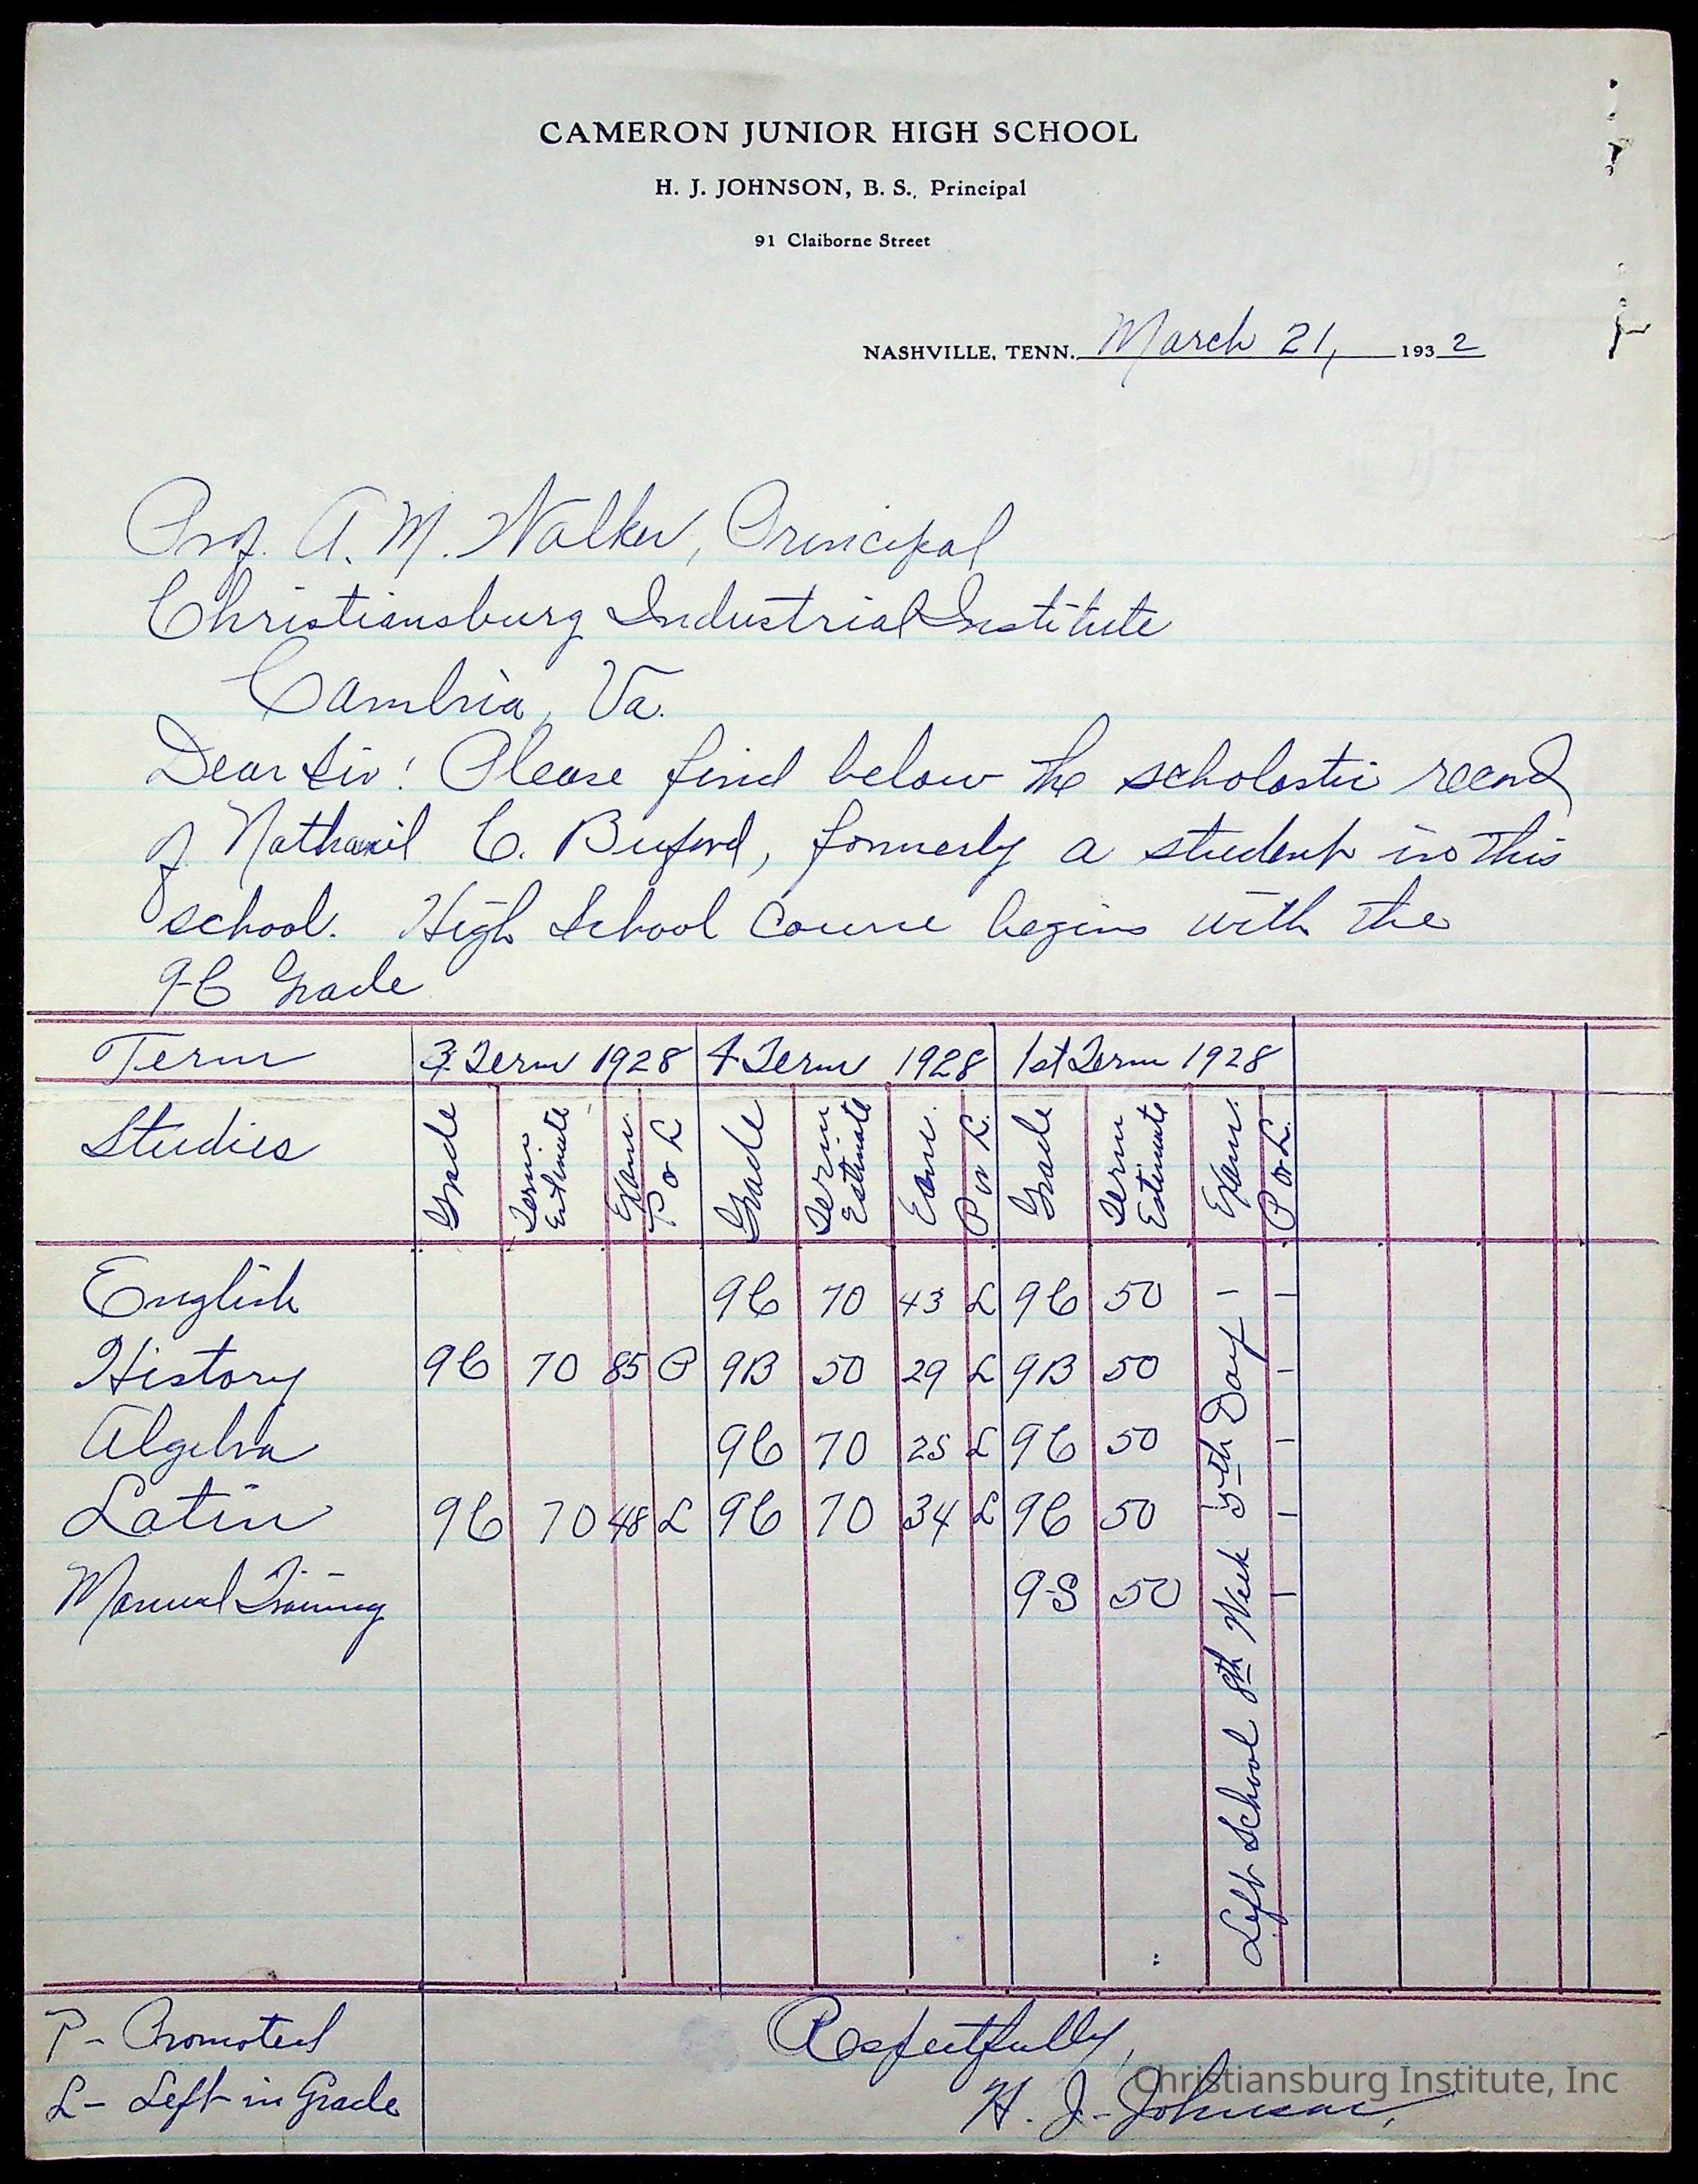 CAMERON JUNIOR HIGH SCHOOL
H. J. JOHNSON, B. S., Principal
91 Claiborne Street
NASHVILLE, TENN. March 21, 1932
Prof. A. M. Walker, Principal
Christiansburg Industrial Institute
Cambria, Va.
Dear Sir: Please find below the scholastic record
of Nathaniel C. Buford, formerly a student in this
school. High School Course begins with the
9-C Grade
Term 3 Term 1928 4 Term 1928 1st Term 1928
Studies Grade Term Estimate Exam. P or L Grade Term Estimate Exam. P or L. Grade Term Estimate Exam. P or L.
English 9C 70 43 L 9C 50 - -
History 9C 70 85 P 9B 50 29 L 9B 50 -
Algebra 9C 70 25 L 9C 50 -
Latin 9C 70 48 L 9C 70 34 L 9C 50 -
Manual Training 9-S 50 -
Left School 8th Week 5th Day
P - Promoted
L - Left in Grade
Respectfully,
H. J. Johnson,
Christiansburg Institute, Inc